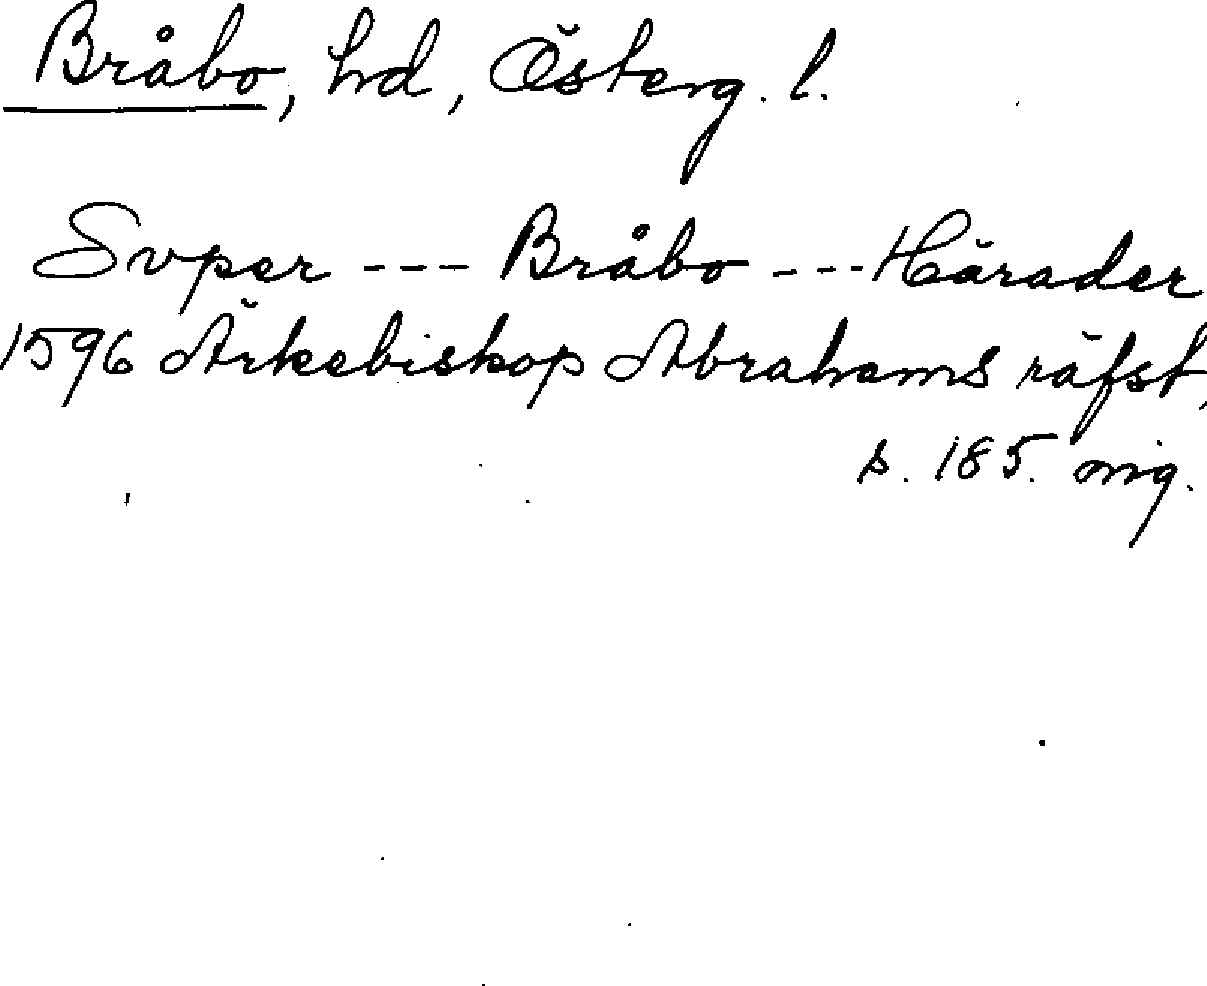 Bråbo, hd, Österg. l.
Svper --- Bråbo --- Härader
1596 Ärkebiskop Abrahams räfst,
s. 185. mig.